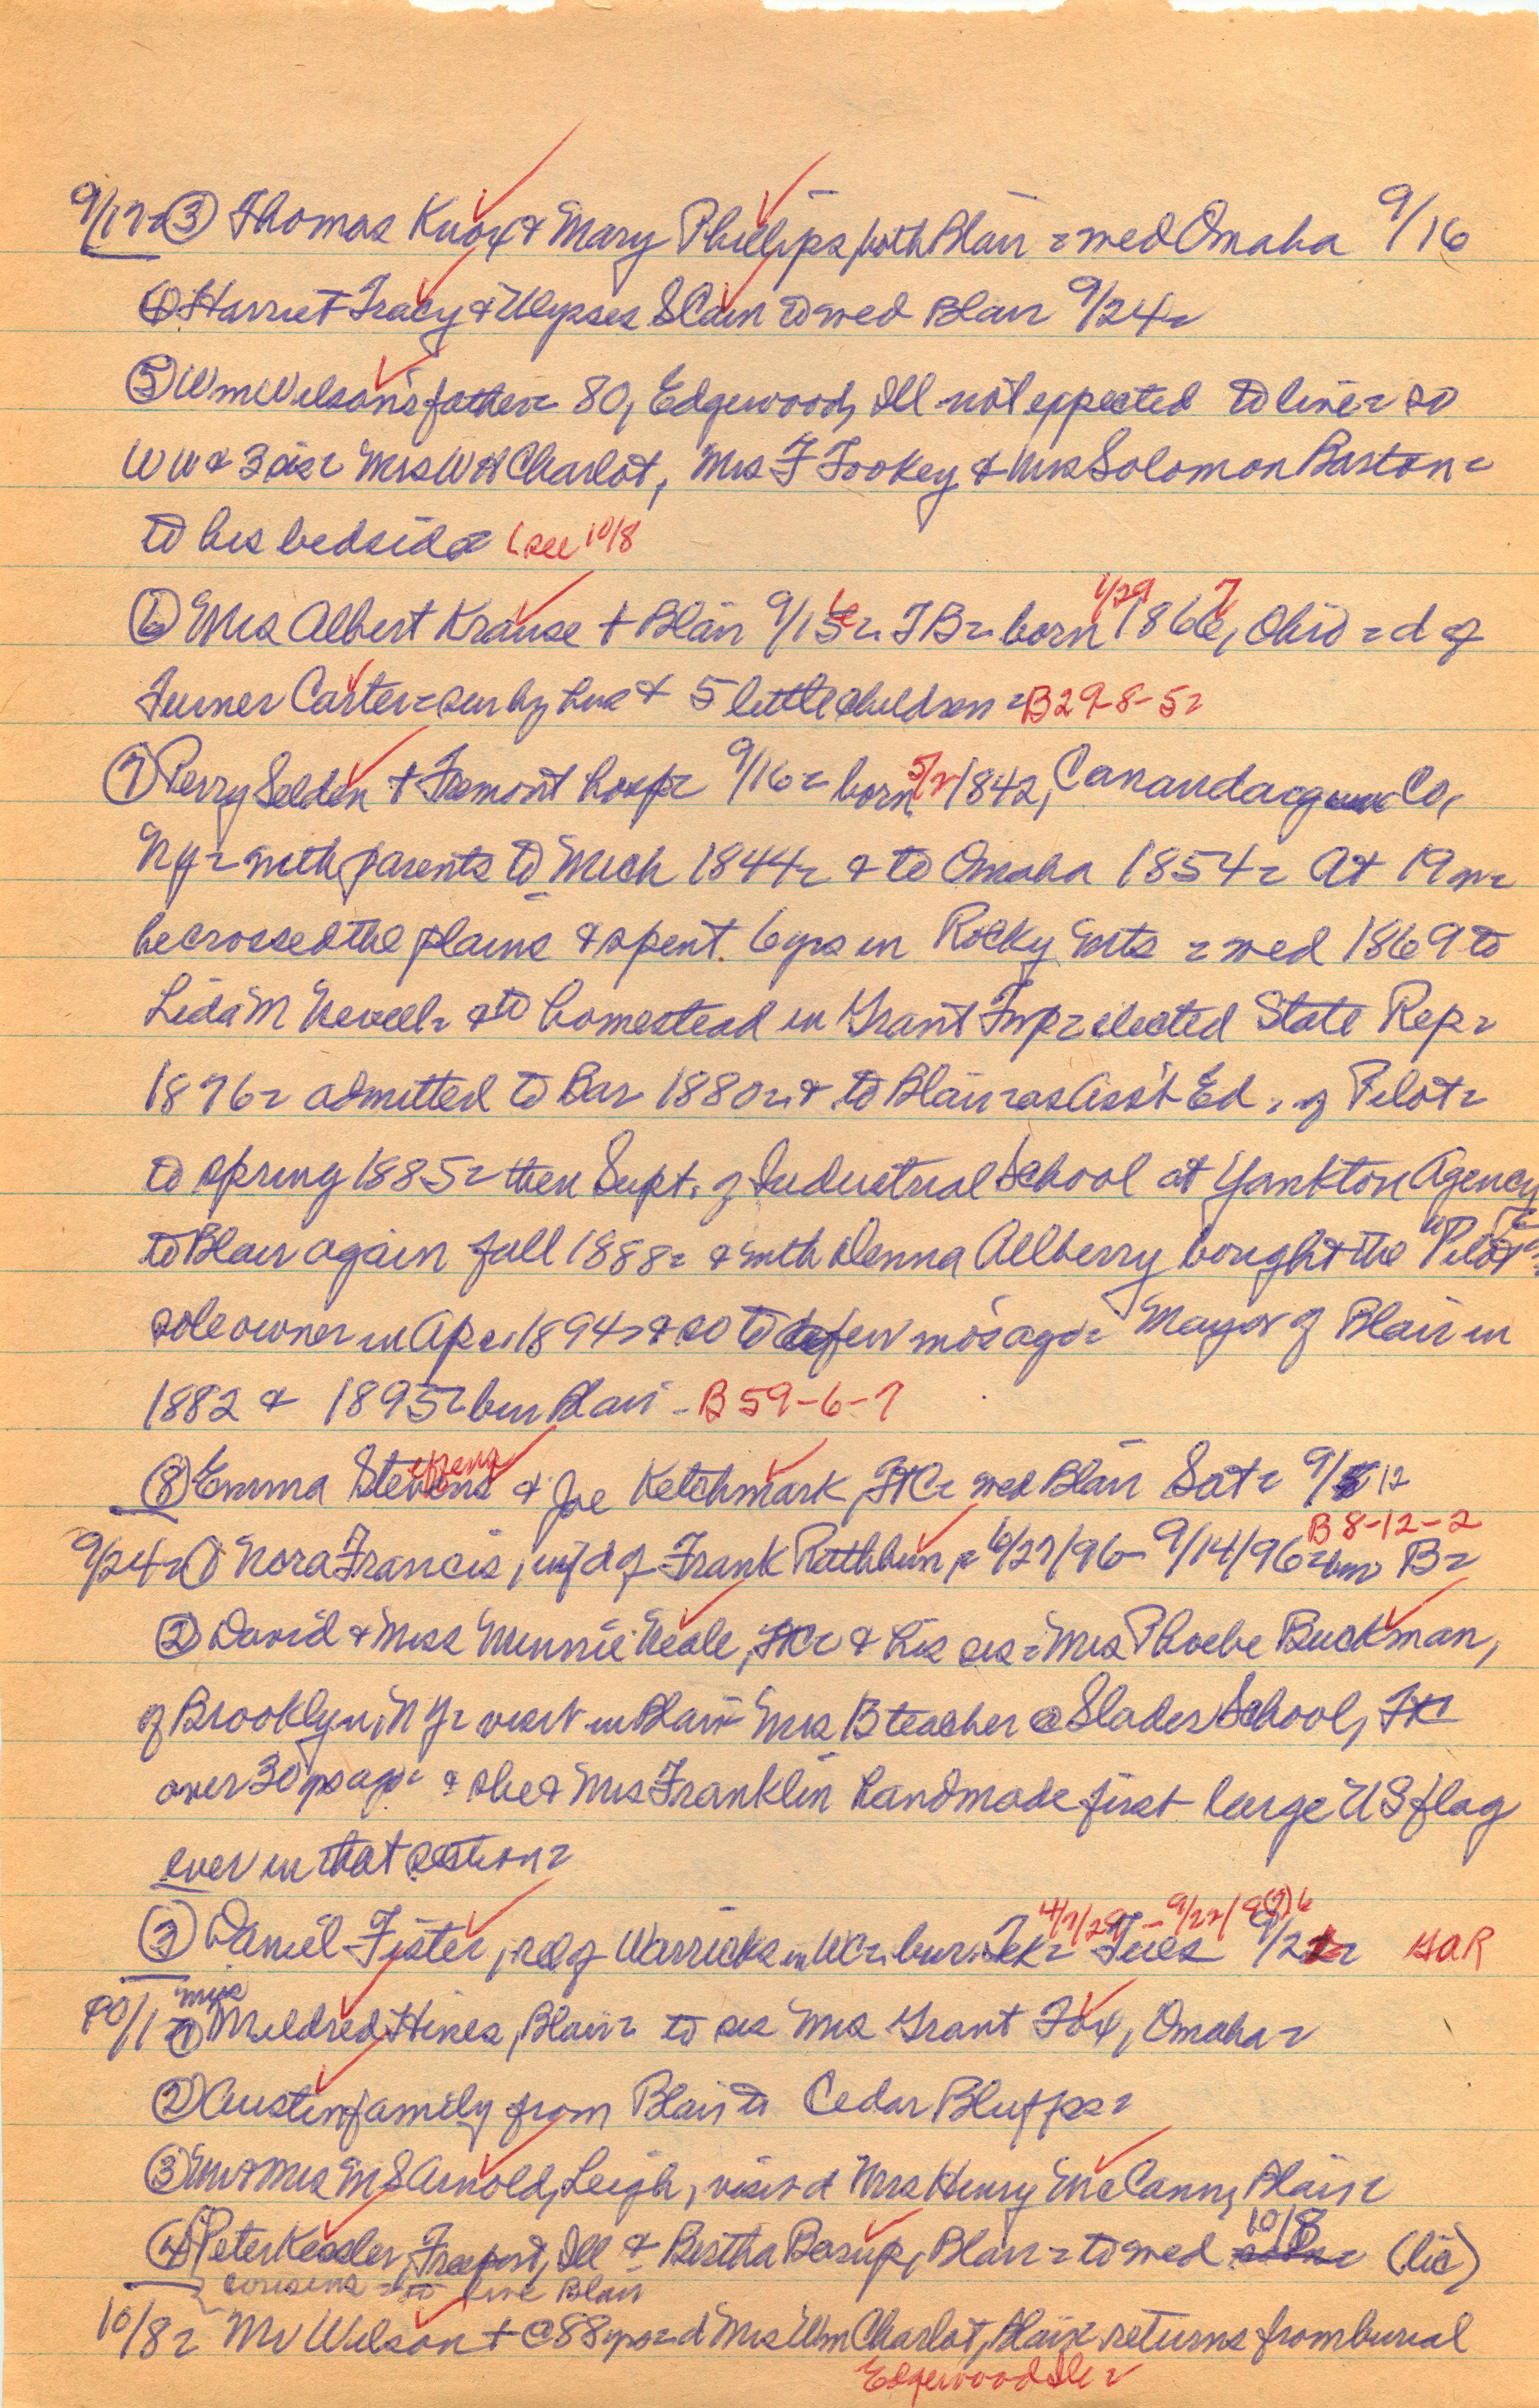 9/17= ③ Thomas Knox & Mary Phillips, both Blair = wed Omaha 9/16
④ Harriet Tracy & Ulysses S Cain to wed Blair 9/24=
⑤ Wm Wilson's father = 80, Edgewood, Ill not expected to live = so
WW & 3 sis = Mrs WH Charlot, Mrs F Tookey & Mrs Solomon Barton =
to his bedside (see 10/8
6 1/29 7
⑥ Mrs Albert Krause + Blair 9/15=. TB = born 1866, Ohio = d of
Turner Carter = sur by hus & 5 little children = B29-8-5=
⑦ Perry Selden + Fremont hosp = 9/16 = born 5/2/1842, Canandaigua Co,
NY = with parents to Mich 1844 = & to Omaha 1854 = At 19
he crossed the plains & spent 6 yrs in Rocky Mts = wed 1869 to
Lida M & to homestead in Grant Twp = elected State Rep =
1876 = admitted to Bar 1880 = & to Blair = as Ass't Ed. of Pilot =
to spring 1885 = then Supt. of Industrial School at Yankton Agency
to Blair again fall 1888 = & with Denna Allberry bought the "Pilot"
sole owner in Apr. 1894 = & so to few mos ago = Mayor of Blair in
1882 & 1895 = bur Blair - B 59-6-7
⑧ Emma Stevens & Joe Ketchmark, FtC = wed Blair Sat = 9/12
B 8-12-2
9/24= ① Nora Francis, inf d of Frank Rathbun, = 6/27/96 - 9/14/96 = bur B =
② David & Miss Minnie Neale, FtC = & his sis = Mrs Phoebe Buckman,
of Brooklyn, NY = visit in Blair = Mrs B teacher @ Slader School, FtC
over 30 yrs ago = & she & Mrs Franklin handmade first large US flag
ever in that section =
4/7/29 - 9/22/96
③ Daniel Fister, rel of Warricks in WC = bur. Tek = Tues 9/22 GAR
10/1= ① Miss Mildred Hines, Blair = to sis Mrs Grant Fox, Omaha =
② Austin family from Blair to Cedar Bluffs =
③ Mr & Mrs MS Arnold, Leigh, visit d Mrs Henry McCann, Blair =
④ Peter Kessler, Freeport, Ill & Bertha Basup, Blair = to wed 10/8 (lic)
cousins = to live Blair
10/8= Mr Wilson + @ 88 yrs = d Mrs Wm Charlot, Blair returns from burial
Edgewood Ill =